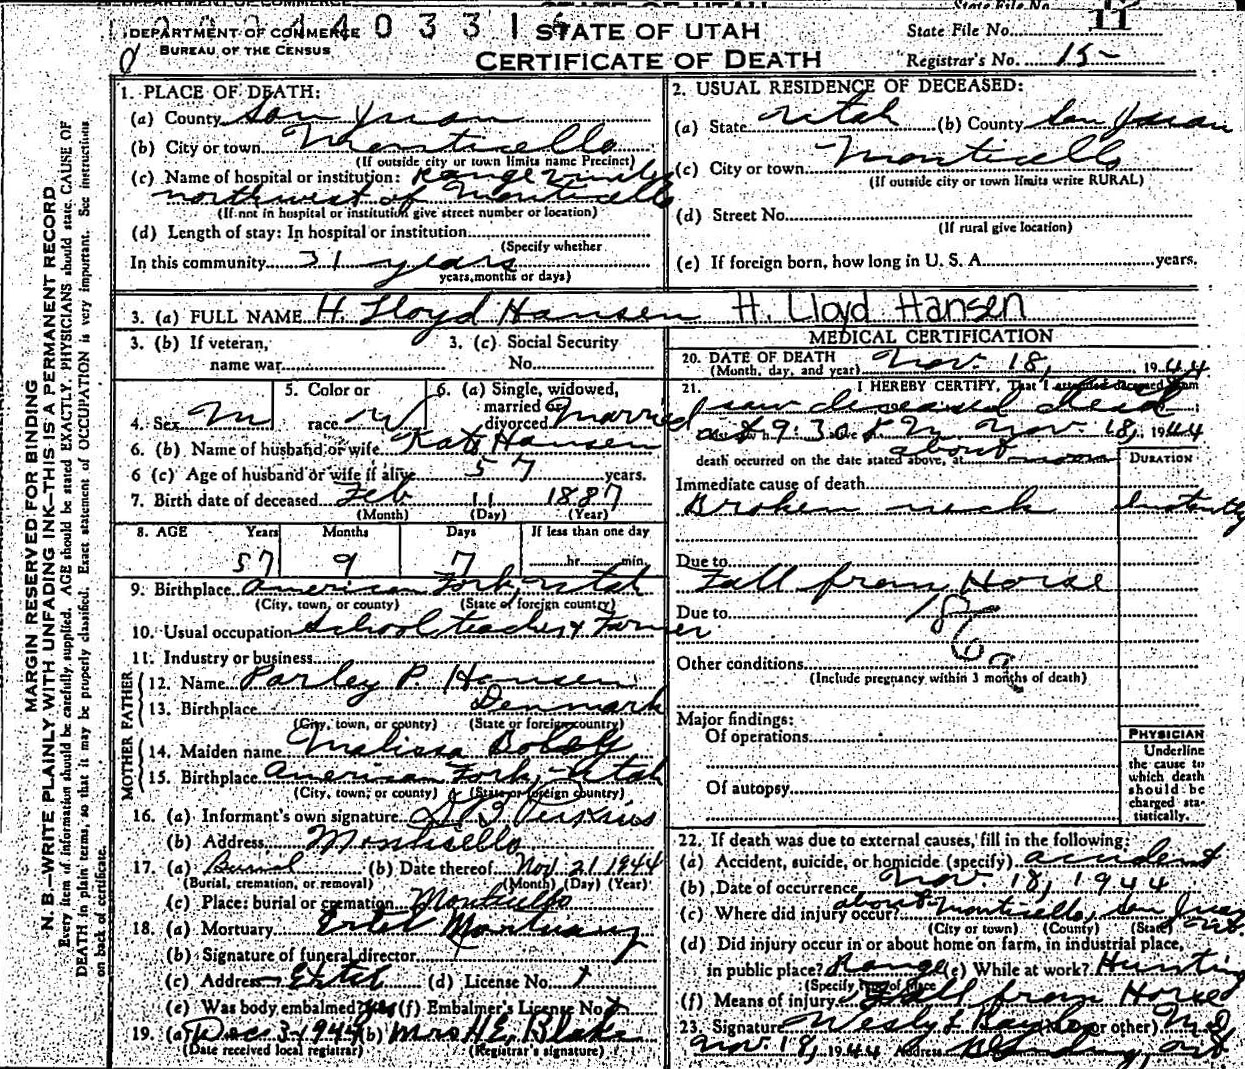 DEPARTMENT OF COMMERCE
BUREAU OF THE CENSUS
0 3 3 1
STATE OF UTAH
CERTIFICATE OF DEATH
State File No. 11
Registrar's No. 15-
MARGIN RESERVED FOR BINDING
N. B.—WRITE PLAINLY WITH UNFADING INK—THIS IS A PERMANENT RECORD
Every item of information should be carefully supplied. AGE should be stated EXACTLY. PHYSICIANS should state CAUSE OF
DEATH in plain terms, so that it may be properly classified. Exact statement of OCCUPATION is very important. See instructions
on back of certificate.
1. PLACE OF DEATH:
(a) County San Juan
(b) City or town Monticello
(If outside city or town limits name Precinct)
(c) Name of hospital or institution: Range
northwest of Monticello
(If not in hospital or institution give street number or location)
(d) Length of stay: In hospital or institution
(Specify whether
In this community 31 years
years, months or days)
2. USUAL RESIDENCE OF DECEASED:
(a) State Utah (b) County San Juan
(c) City or town Monticello
(If outside city or town limits write RURAL)
(d) Street No.
(If rural give location)
(e) If foreign born, how long in U. S. A. years.
3. (a) FULL NAME H. Lloyd Hansen H. Lloyd Hansen
3. (b) If veteran, name war
3. (c) Social Security No.
4. Sex M
5. Color or race W
6. (a) Single, widowed, married or divorced Married
6. (b) Name of husband or wife Kate Hansen
6 (c) Age of husband or wife if alive 57 years.
7. Birth date of deceased Feb 11 1887
(Month) (Day) (Year)
8. AGE Years Months Days If less than one day
57 9 7 hr. min.
9. Birthplace American Fork, Utah
(City, town, or county) (State or foreign country)
10. Usual occupation School teacher & Farmer
11. Industry or business
FATHER
12. Name Parley P. Hansen
13. Birthplace Denmark
(City, town, or county) (State or foreign country)
MOTHER
14. Maiden name Malissa
15. Birthplace American Fork, Utah
(City, town, or county) (State or foreign country)
16. (a) Informant's own signature Perkins
(b) Address Monticello
17. (a) Burial (b) Date thereof Nov. 21 1944
(Burial, cremation, or removal) (Month) (Day) (Year)
(c) Place: burial or cremation Monticello
18. (a) Mortuary Ertel Mortuary
(b) Signature of funeral director
(c) Address Ertel (d) License No.
(e) Was body embalmed yes (f) Embalmer's License No.
19. (a) Dec 3-1944 (b) Mrs H.E. Blake
(Date received local registrar) (Registrar's signature)
MEDICAL CERTIFICATION
20. DATE OF DEATH
(Month, day, and year) Nov. 18, 1944
21. I HEREBY CERTIFY, That I attended deceased from
saw deceased dead
at 9:30 Nov. 18, 1944
death occurred on the date stated above, at about noon
DURATION
Immediate cause of death
Broken neck Instantly
Due to
Fall from Horse
Due to
186a
Other conditions
(Include pregnancy within 3 months of death)
Major findings:
Of operations
Of autopsy
PHYSICIAN
Underline
the cause to
which death
should be
charged sta-
tistically.
22. If death was due to external causes, fill in the following:
(a) Accident, suicide, or homicide (specify) accident
(b) Date of occurrence Nov. 18, 1944
(c) Where did injury occur? about Monticello, San Juan Ut.
(City or town) (County) (State)
(d) Did injury occur in or about home on farm, in industrial place,
in public place? Range (e) While at work? Hunting
(Specify type of place
(f) Means of injury Fall from Horse
23. Signature (M.D. or other) M.D.
Nov 18, 1944 Address Blanding, Ut